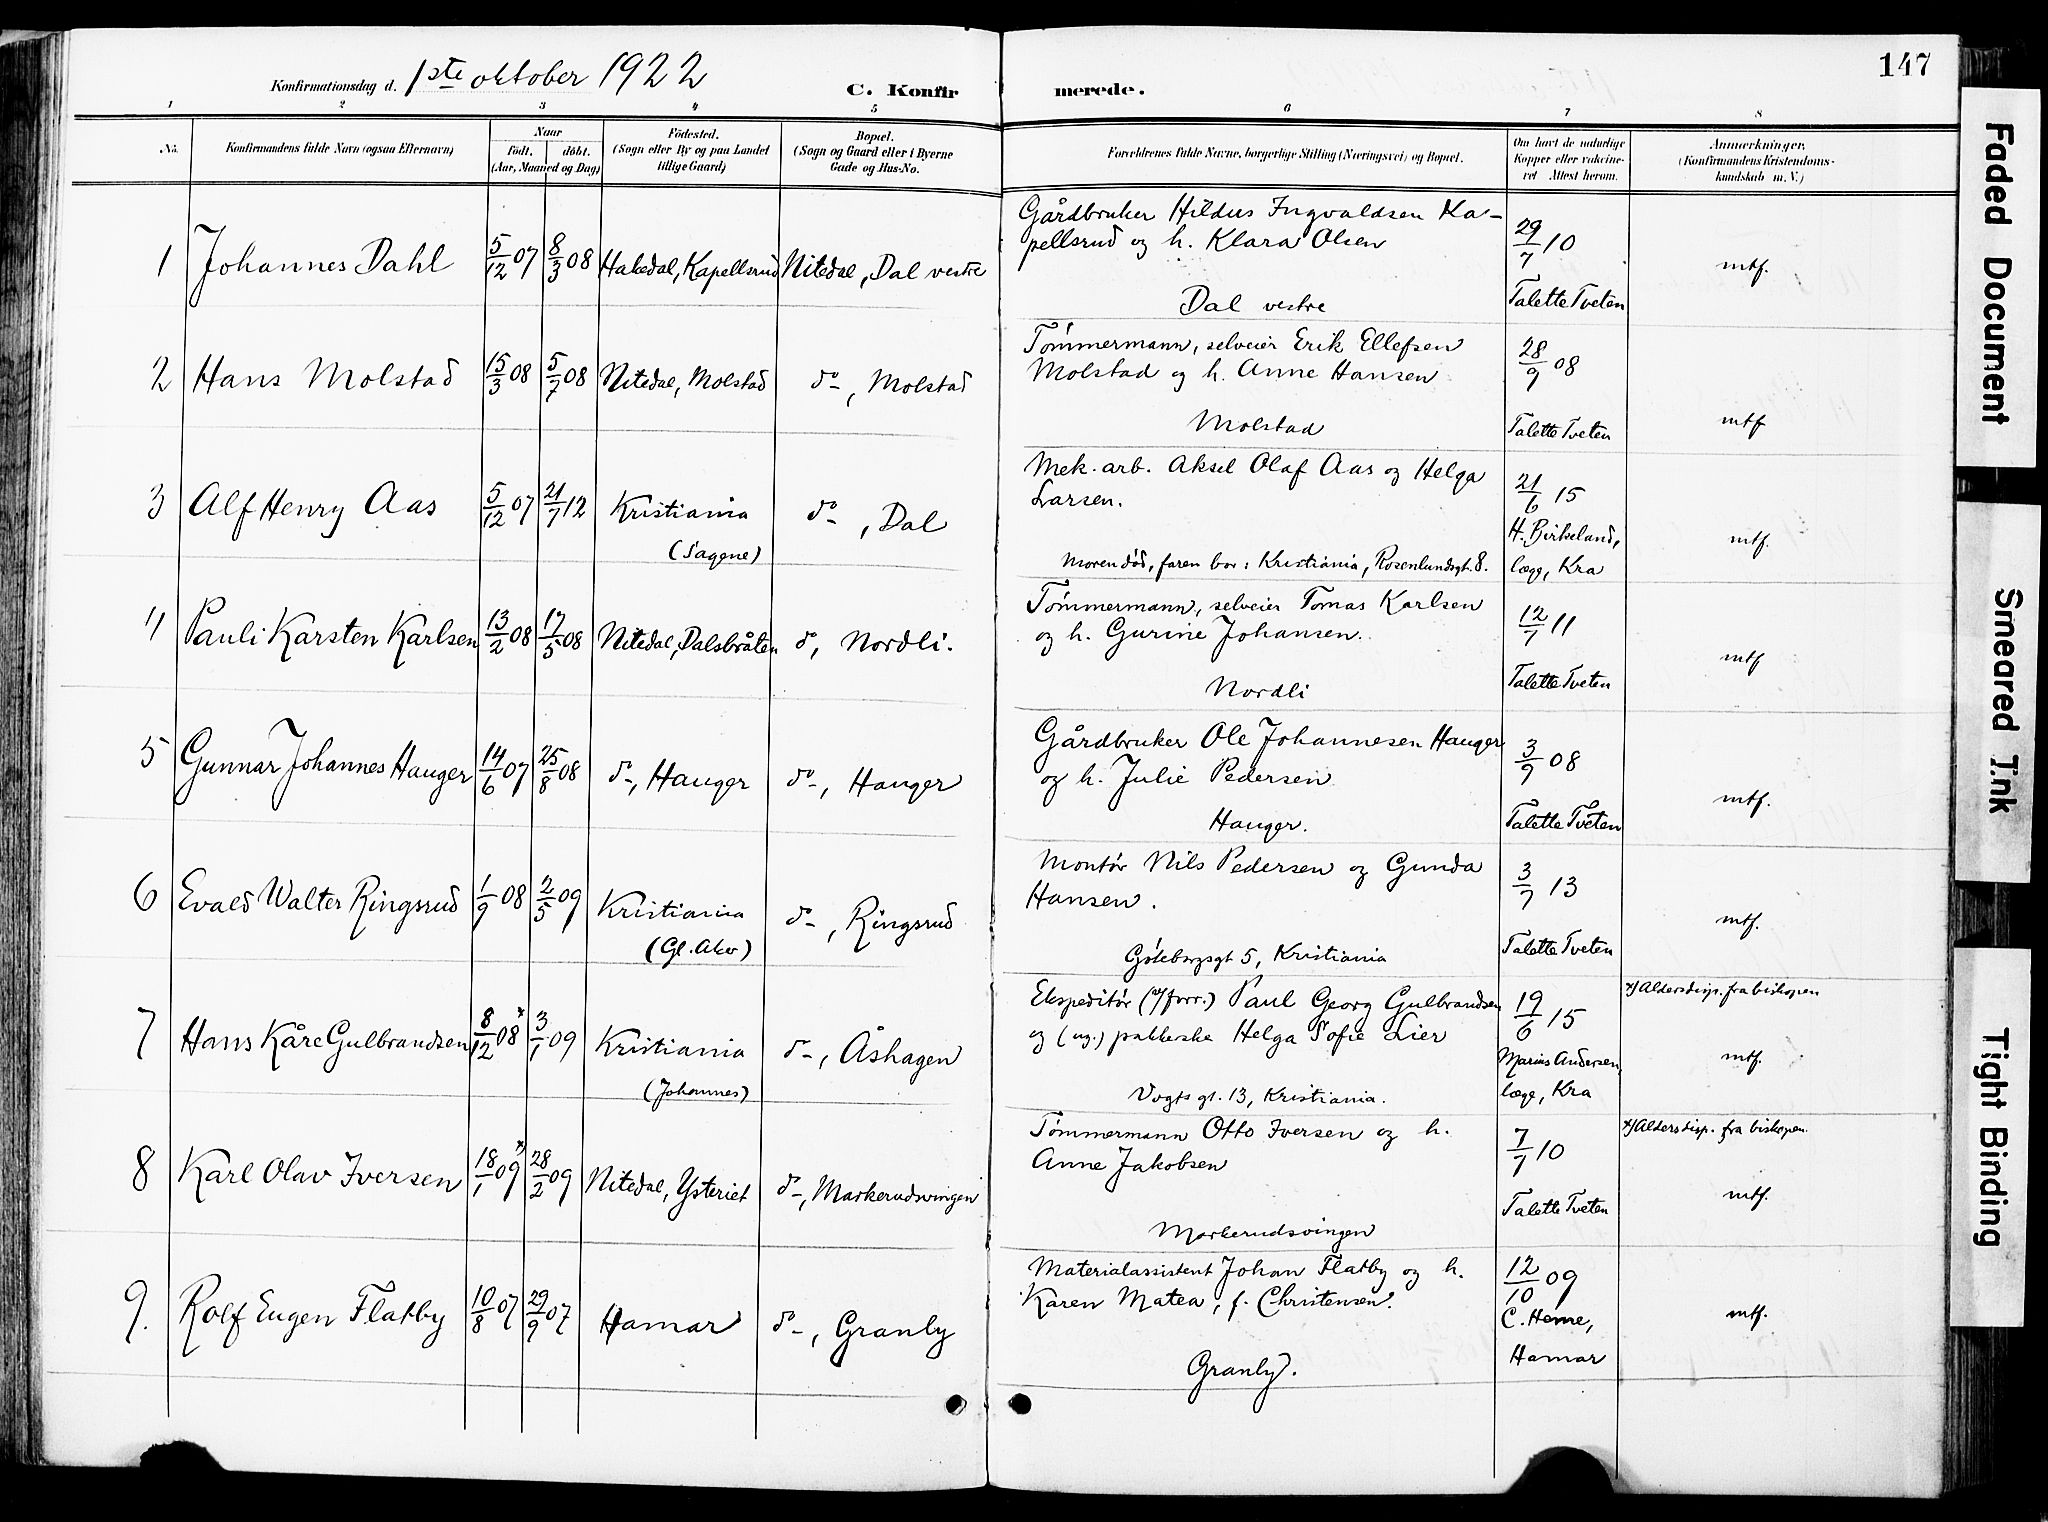 147
Konfirmationsdag d. 1ste oktober 1922
C. Konfirmerede.
1 2 3 4 5 6 7 8
No.
Konfirmandens fulde Navn (ogsaa Efternavn)
Naar
født. døbt.
(Aar, Maaned og Dag)
Fødested.
(Sogn eller By og paa Landet
tillige Gaard)
Bopæl.
(Sogn og Gaard eller i Byerne
Gade og Hus-No.
Forældrenes fulde Navne, borgerlige Stilling (Næringsvei) og Bopæl.
Om havt de naturlige
Kopper eller vaccine-
ret Attest herom.
Anmærkninger.
(Konfirmandens Kristendoms-
kundskab m. V.)
1 Johannes Dahl 5/12 07 8/3 08 Hakedal, Kapellsrud Nitedal, Dal vestre
Gårdbruker Hildus Ingvaldsen Ka-
pellsrud og h. Klara Olsen
Dal vestre
29/7 10
Talette Tveten
mtf.
2 Hans Molstad 15/3 08 5/7 08 Nitedal, Molstad do, Molstad
Tømmermann, selveier Erik Ellefsen
Molstad og h. Anne Hansen
Molstad
28/9 08
Talette Tveten
mtf
3 Alf Henry Aas 5/12 07 21/7 12 Kristiania do, Dal
(Sagene)
Mek. arb. Aksel Olaf Aas og Helga
Larsen.
Moren død, faren bor: Kristiania, Rosenlundsgt. 8.
21/6 15
H. Birkeland,
læge, Kra
mtf.
4 Pauli Karsten Karlsen 13/2 08 17/5 08 Nitedal, Dalsbråten do, Nordli.
Tømmermann, selveier Tomas Karlsen
og h. Gurine Johansen.
Nordli
12/7 11
Talette Tveten
mtf
5 Gunnar Johannes Hauger 14/6 07 25/8 08 do, Hauger do, Hauger
Gårdbruker Ole Johannesen Hauger
og h. Julie Pedersen
Hauger.
3/9 08
Talette Tveten
mtf.
6 Evald Walter Ringsrud 1/9 08 2/5 09 Kristiania do, Ringsrud
(Gl. Aker)
Montør Nils Pedersen og Gunda
Hansen.
Gøteborgsgt 5, Kristiania
3/7 13
Talette Tveten
mtf.
7 Hans Kåre Gulbrandsen 8/12 08 x 3/1 09 Kristiania do, Åshagen
(Johannes)
Ekspeditør (ug. forr.) Paul Georg Gulbrandsen
og (ug.) pakkerske Helga Sofie Lier
Vogts gt. 13, Kristiania.
19/6 15
Marius Andersen,
læge, Kra
x) Aldersdisp. fra biskopen
mtf.
8 Karl Olav Iversen 18/1 09 x) 28/2 09 Nitedal, Ysteriet do, Markerudsvingen
Tømmermann Otto Iversen og h.
Anne Jakobsen
Markerudsvingen
7/7 10
Talette Tveten
x) Aldersdisp. fra biskopen.
mtf.
9. Rolf Eugen Flatby 10/8 07 29/9 07 Hamar do, Granly
Materialassistent Johan Flatby og h.
Karen Matea, f. Christensen.
Granly.
12/10 09
Hamar
mtf.
Faded Document
Smeared Ink
Tight Binding